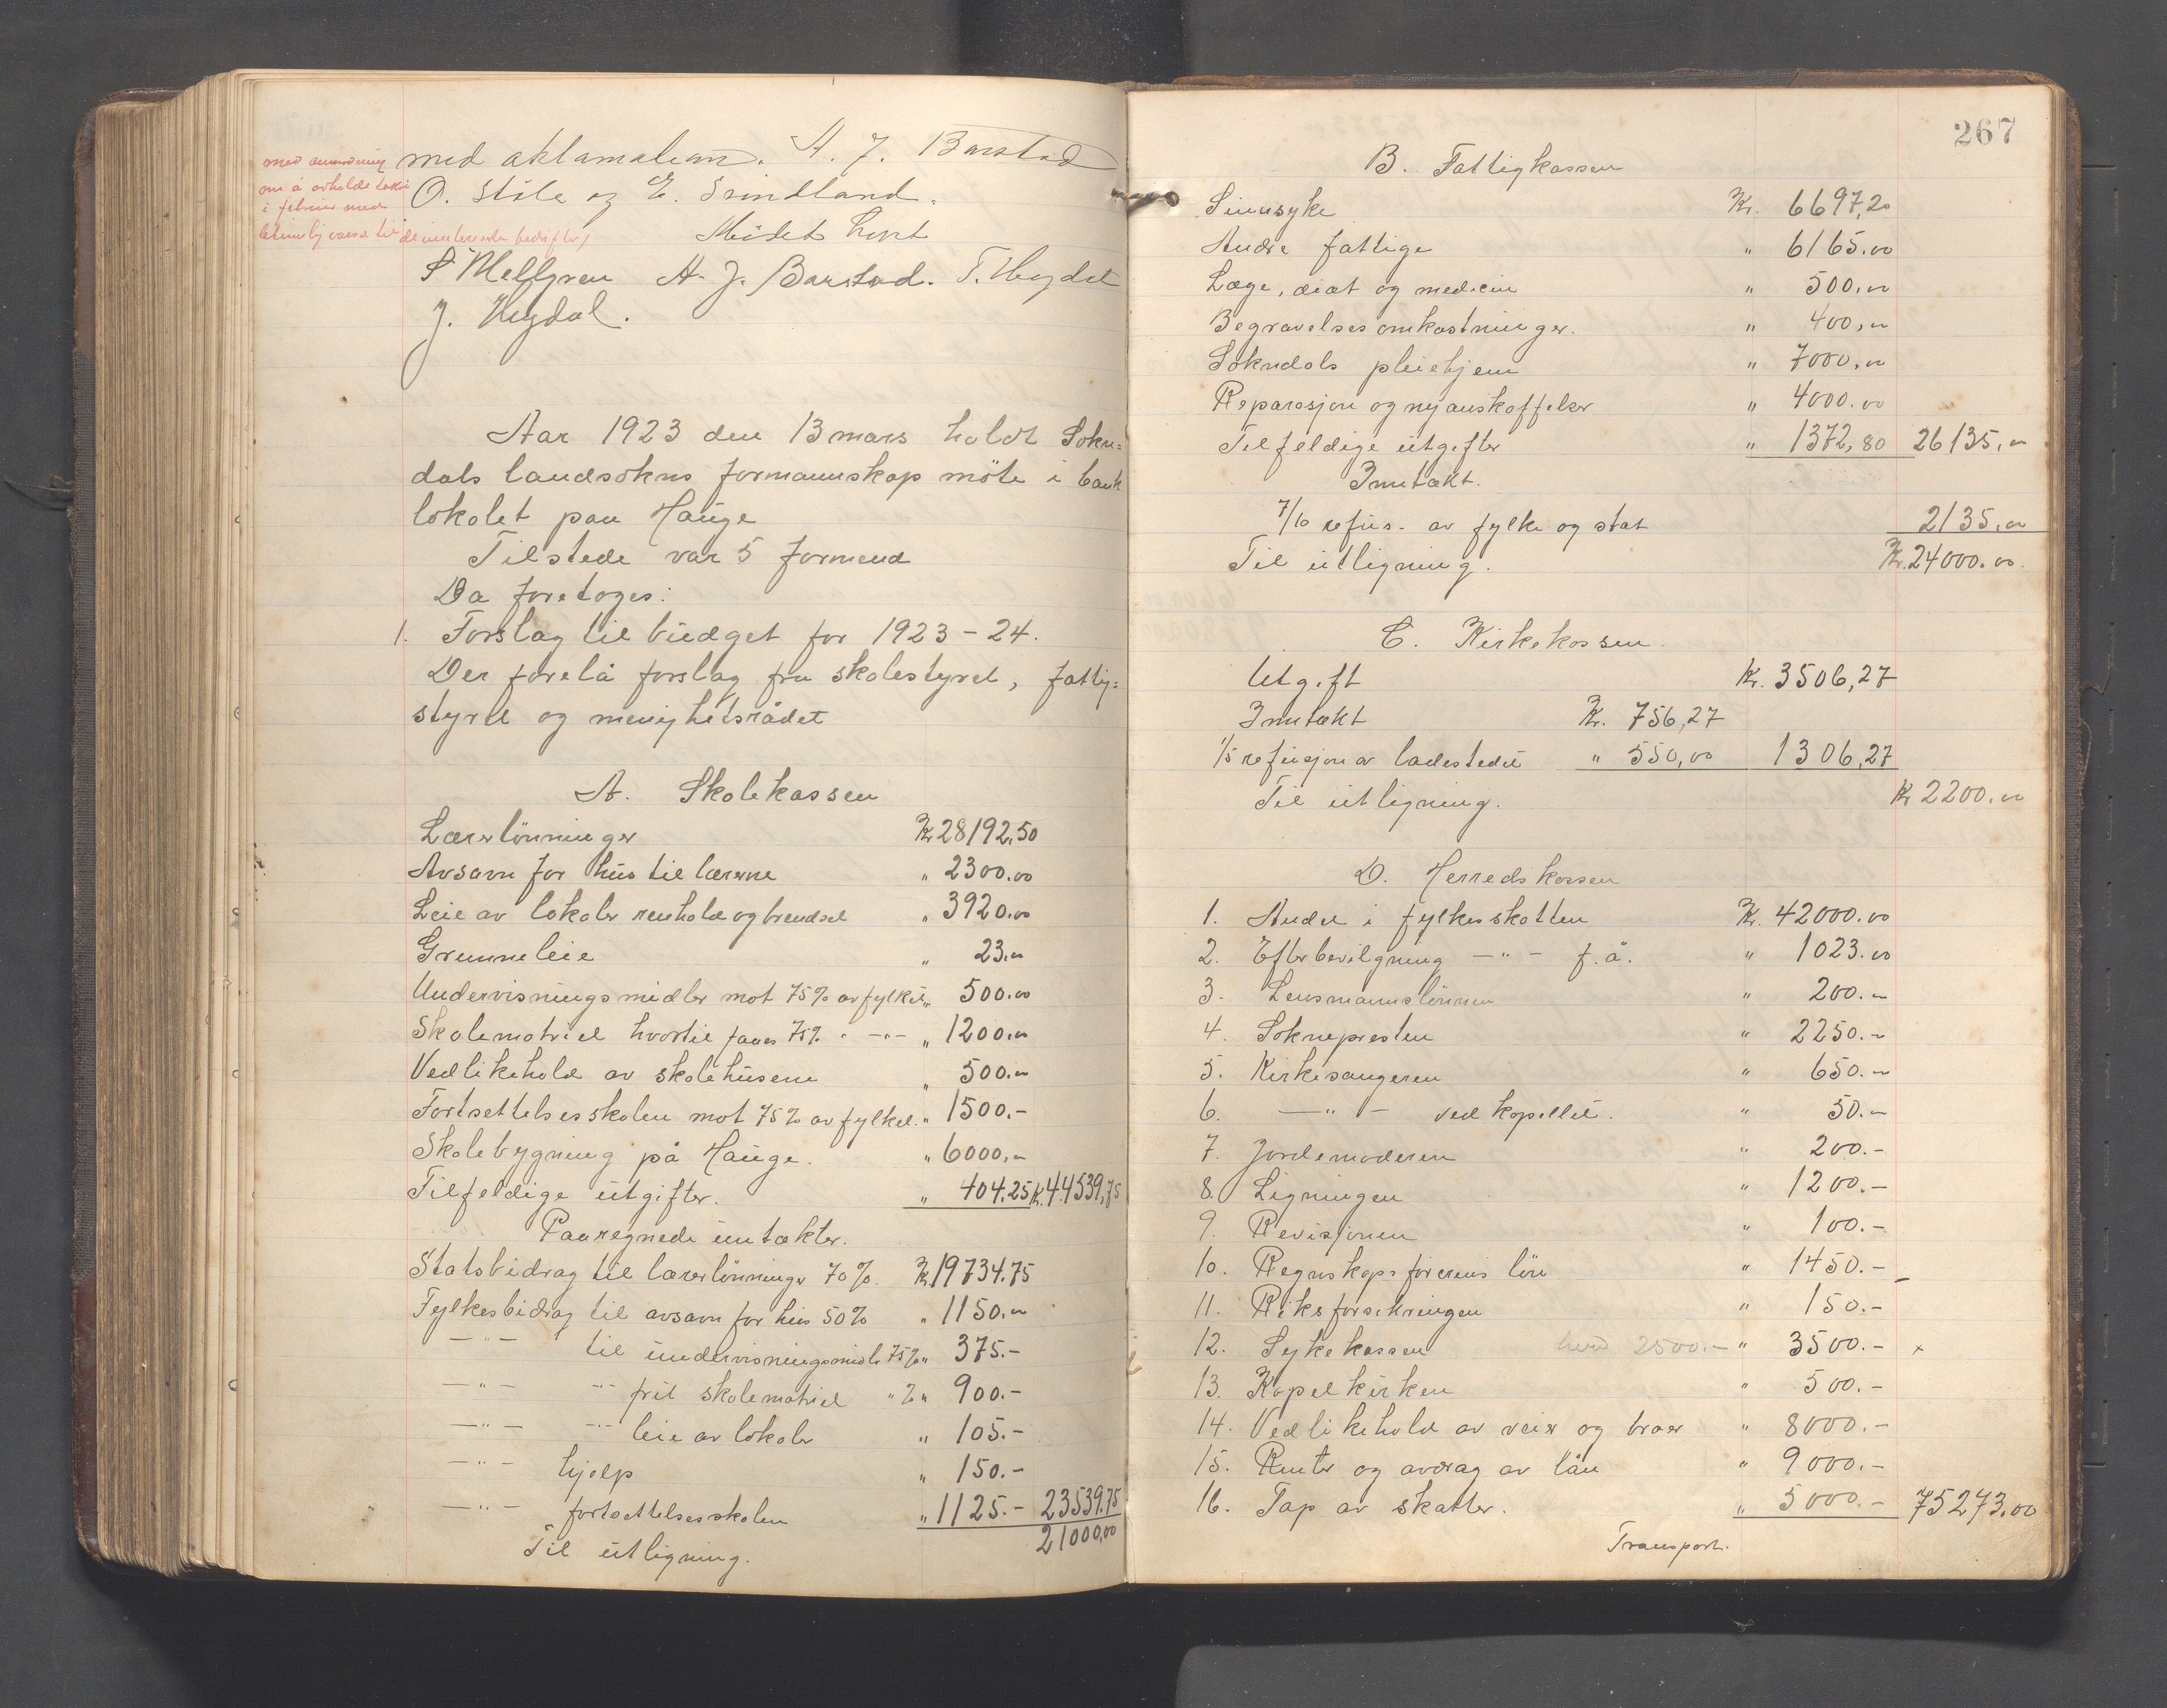 med aklamation. A. J. Barstad
O. Støle og E. Svindland.
Mödet hevt
A. J. Barstad. T. Hegdal
J. Hegdal.
Aar 1923 den 13 mars holdt Sokn=
dals landsokns formannskap möte i bank
lokalet paa Hauge
Tilstede var 5 formend
Da foretoges:
1. Forslag til budget for 1923-24.
Der forelå forslag fra skolestyret, fattig=
styret og menighetsrådet
A. Skolekassen
Lærerlönninger Kr 28192,50
Avsavn for hus til lærerne " 2300.00
Leie av lokaler renhold og brendsel " 3920.00
Grunnleie " 23.00
Undervisningsmidler mot 75% av fylket " 500.00
Skolematriel hvortil faaes 75% " -"- " 1200.00
Vedlikehold av skolehusene " 500.00
Fortsettelsesskolen mot 75% av fylket. " 1500.-
Skolebygning på Hauge. " 6000.00
Tilfeldige utgifter. " 404.25 Kr. 44539,75
Paaregnede inntækter.
Statsbidrag til lærerlönninger 70%. Kr 19734.75
Fylkesbidrag til avsavn for hus 50% " 1150.00
-"- til undervisningsmidl. 75% " 375.-
-"- -"- frit skolematriel " % " 900.-
-"- -"- leie av lokaler " 105.-
-"- hjelp " 150.-
-"- fortsettelsesskolen " 1125.- 23539.75
Til utligning. 21000,00
267
B. Fattigkassen
Sinnsyke Kr. 6697,20
Andre fattige " 6165.00
Læge, diæt og medicin " 500.00
Begravelsesomkostninger. " 400.00
Sokndals pleiehjem " 7000.00
Reparasjon og nyanskaffelser " 4000.00
Tilfeldige utgifter " 1372,80 26135.00
Inntækt.
7/10 refus. av fylke og stat 2135.00
Til utligning. Kr. 24000.00.
C. Kirkekassen.
Utgift Kr. 3506,27
Inntækt Kr. 756,27
1/5 refusjon av ladestedet " 550,00 1306,27
Til utligning. Kr 2200.00
D. Herredskassen
1. Andel i fylkesskatten Kr. 42000.00
2. Efterbevilgning -"- f.å. " 1023.00
3. Lensmannslönnen " 200.-
4. Soknepresten " 2250.-
5. Kirkesangeren " 650.-
6. -"- ved kapellet. " 50.-
7. Jordemoderen " 200.-
8. Ligningen " 1200.-
9. Revisjonen " 100.-
10. Regnskapsførerens lön " 1450.-
11. Riksforsikringen " 150.-
12. Sykekassen 2500.- " 3500.- x
13. Kapelkirken " 500.-
14. Vedlikehold av veier og broer " 8000.-
15. Renter og avdrag av lån " 9000.-
16. Tap av skatter. " 5000.- 75273.00
Transport.